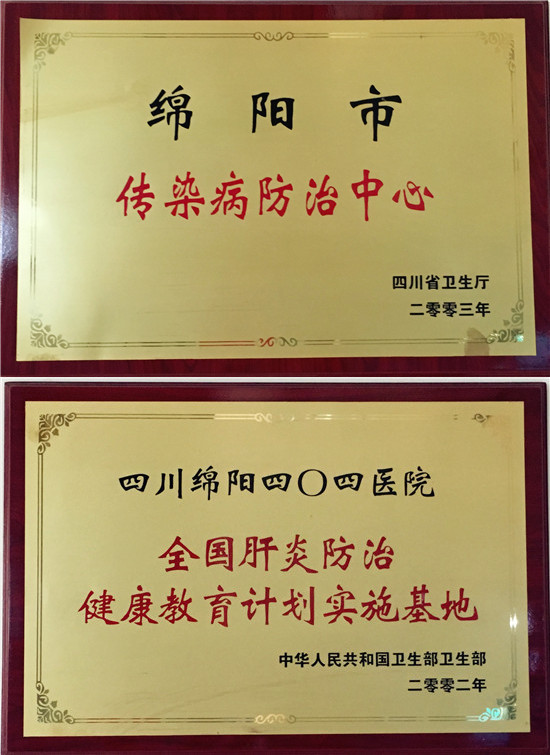 绵阳市
传染病防治中心
四川省卫生厅
二零零三年
四川绵阳四〇四医院
全国肝炎防治
健康教育计划实施基地
中华人民共和国卫生部卫生部
二零零二年